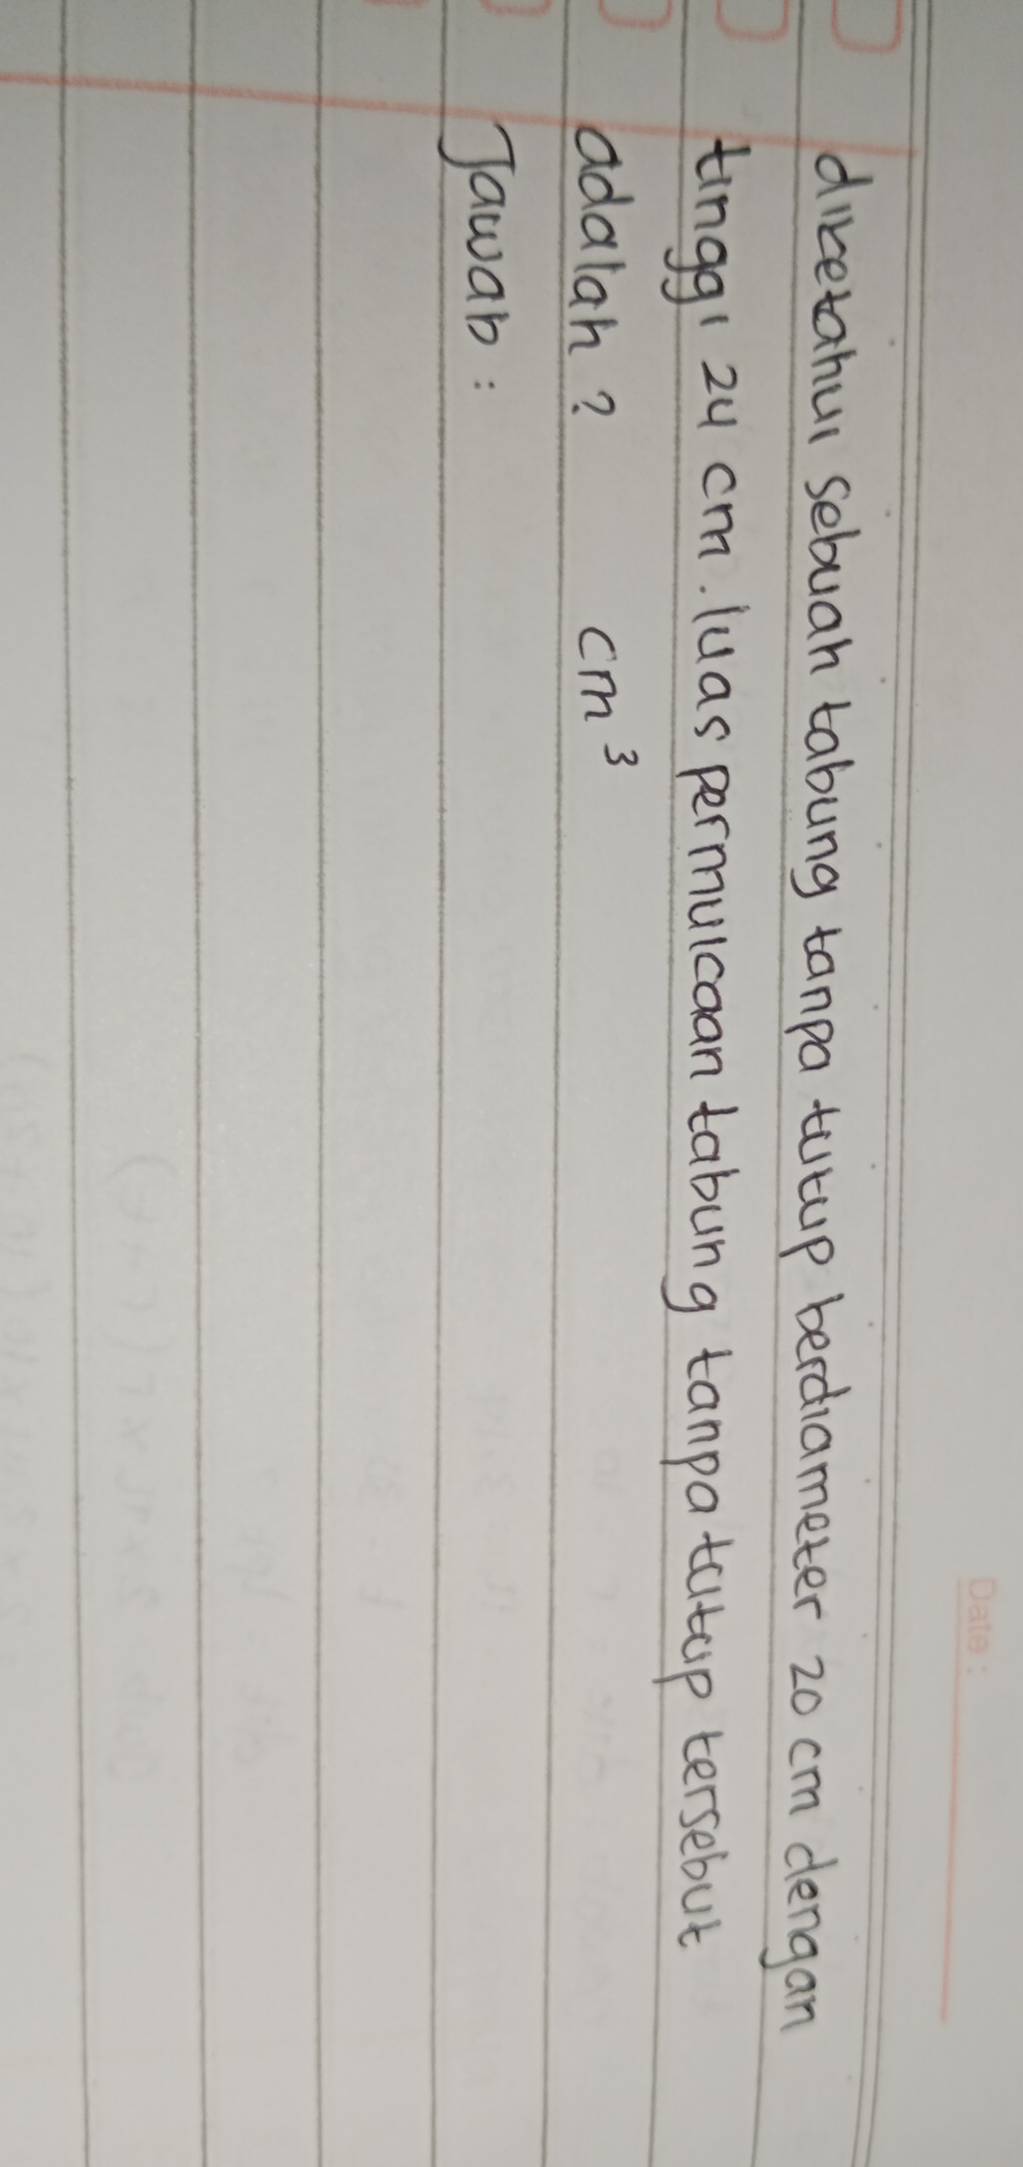 Date :
diketahui sebuah tabung tanpa tutup berdiameter 20 cm dengan
tinggi 24 cm. luas permukaan tabung tanpa tutup tersebut
adalah? cm³
Jawab :